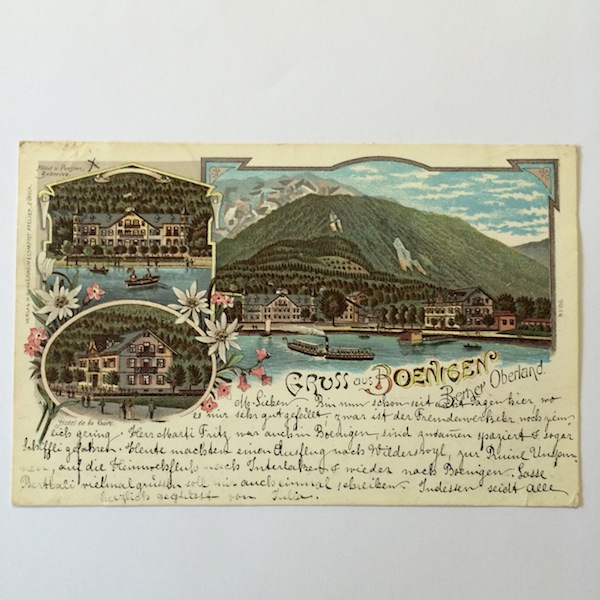 Hôtel u. Pension
Bellerive
Hôtel de la Gare
No 195.
GRUSS aus BOENIGEN
Berner Oberland.
M. Lieben. Bin nun schon seit Tagen hier wo
es mir sehr gut gefällt, zwar ist der Fremdenverkehr noch ziem-
lich gering. Herr Marti Fritz war auch in Boenigen, sind zusamen spaziert & sogar
Schiffli gefahren. Heute machten einen Ausflug nach Wilderswyl, zur Ruine Unspun-
nen, auf die Heimwehfluh nach Interlaken & wieder nach Boenigen. Lasse
vielmal grüssen soll mir auch einmal schreiben. Indessen seidt alle
herzlich gegrüsst von Julie.